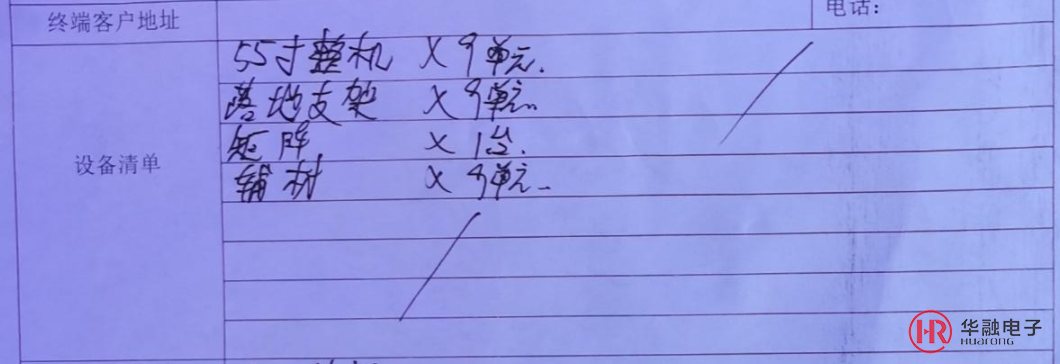 终端客户地址
电话：
设备清单
55寸整机 X 9单元.
落地支架 X 9单元.
矩阵 X 1台.
辅材 X 9单元.
HR 华融电子
HUARONG